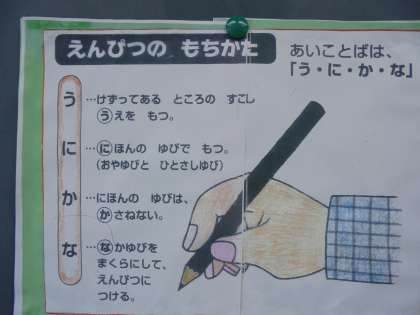 えんぴつの もちかた
あいことばは、
「う・に・か・な」
う …けずってある ところの すこし
うえを もつ。
に …にほんの ゆびで もつ。
(おやゆびと ひとさしゆび)
か …にほんの ゆびは、
かさねない。
な …なかゆびを
まくらにして、
えんぴつに
つける。